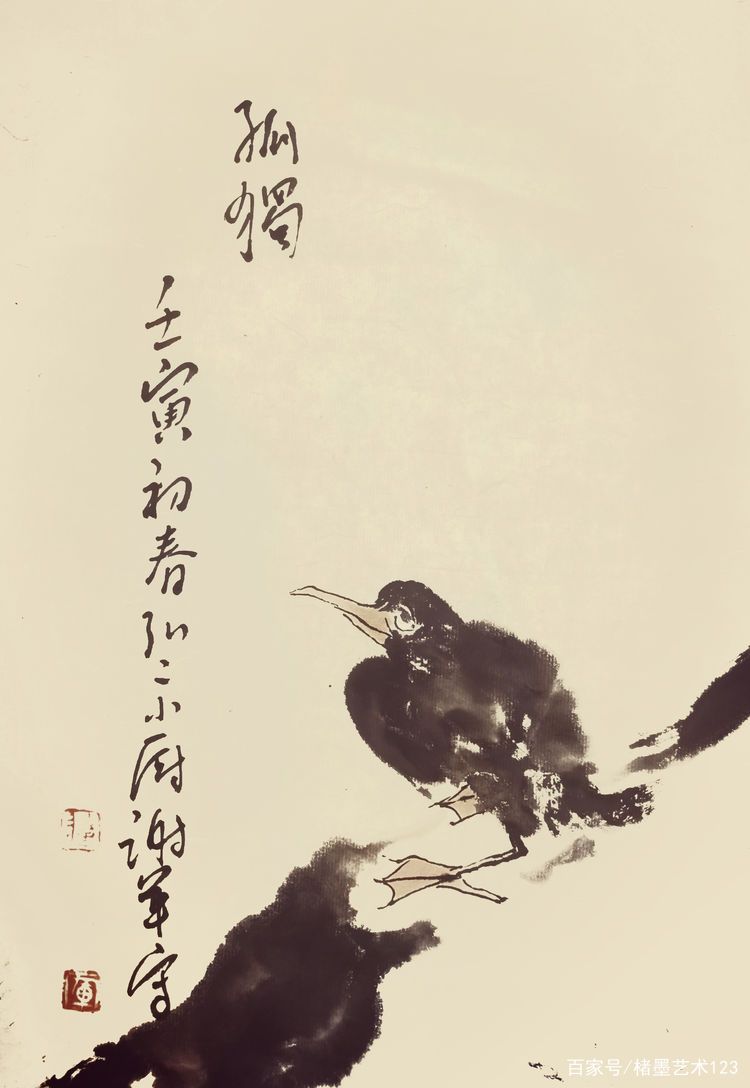 孤獨
壬寅初春弘小厨谢军写
百家号/楮墨艺术123